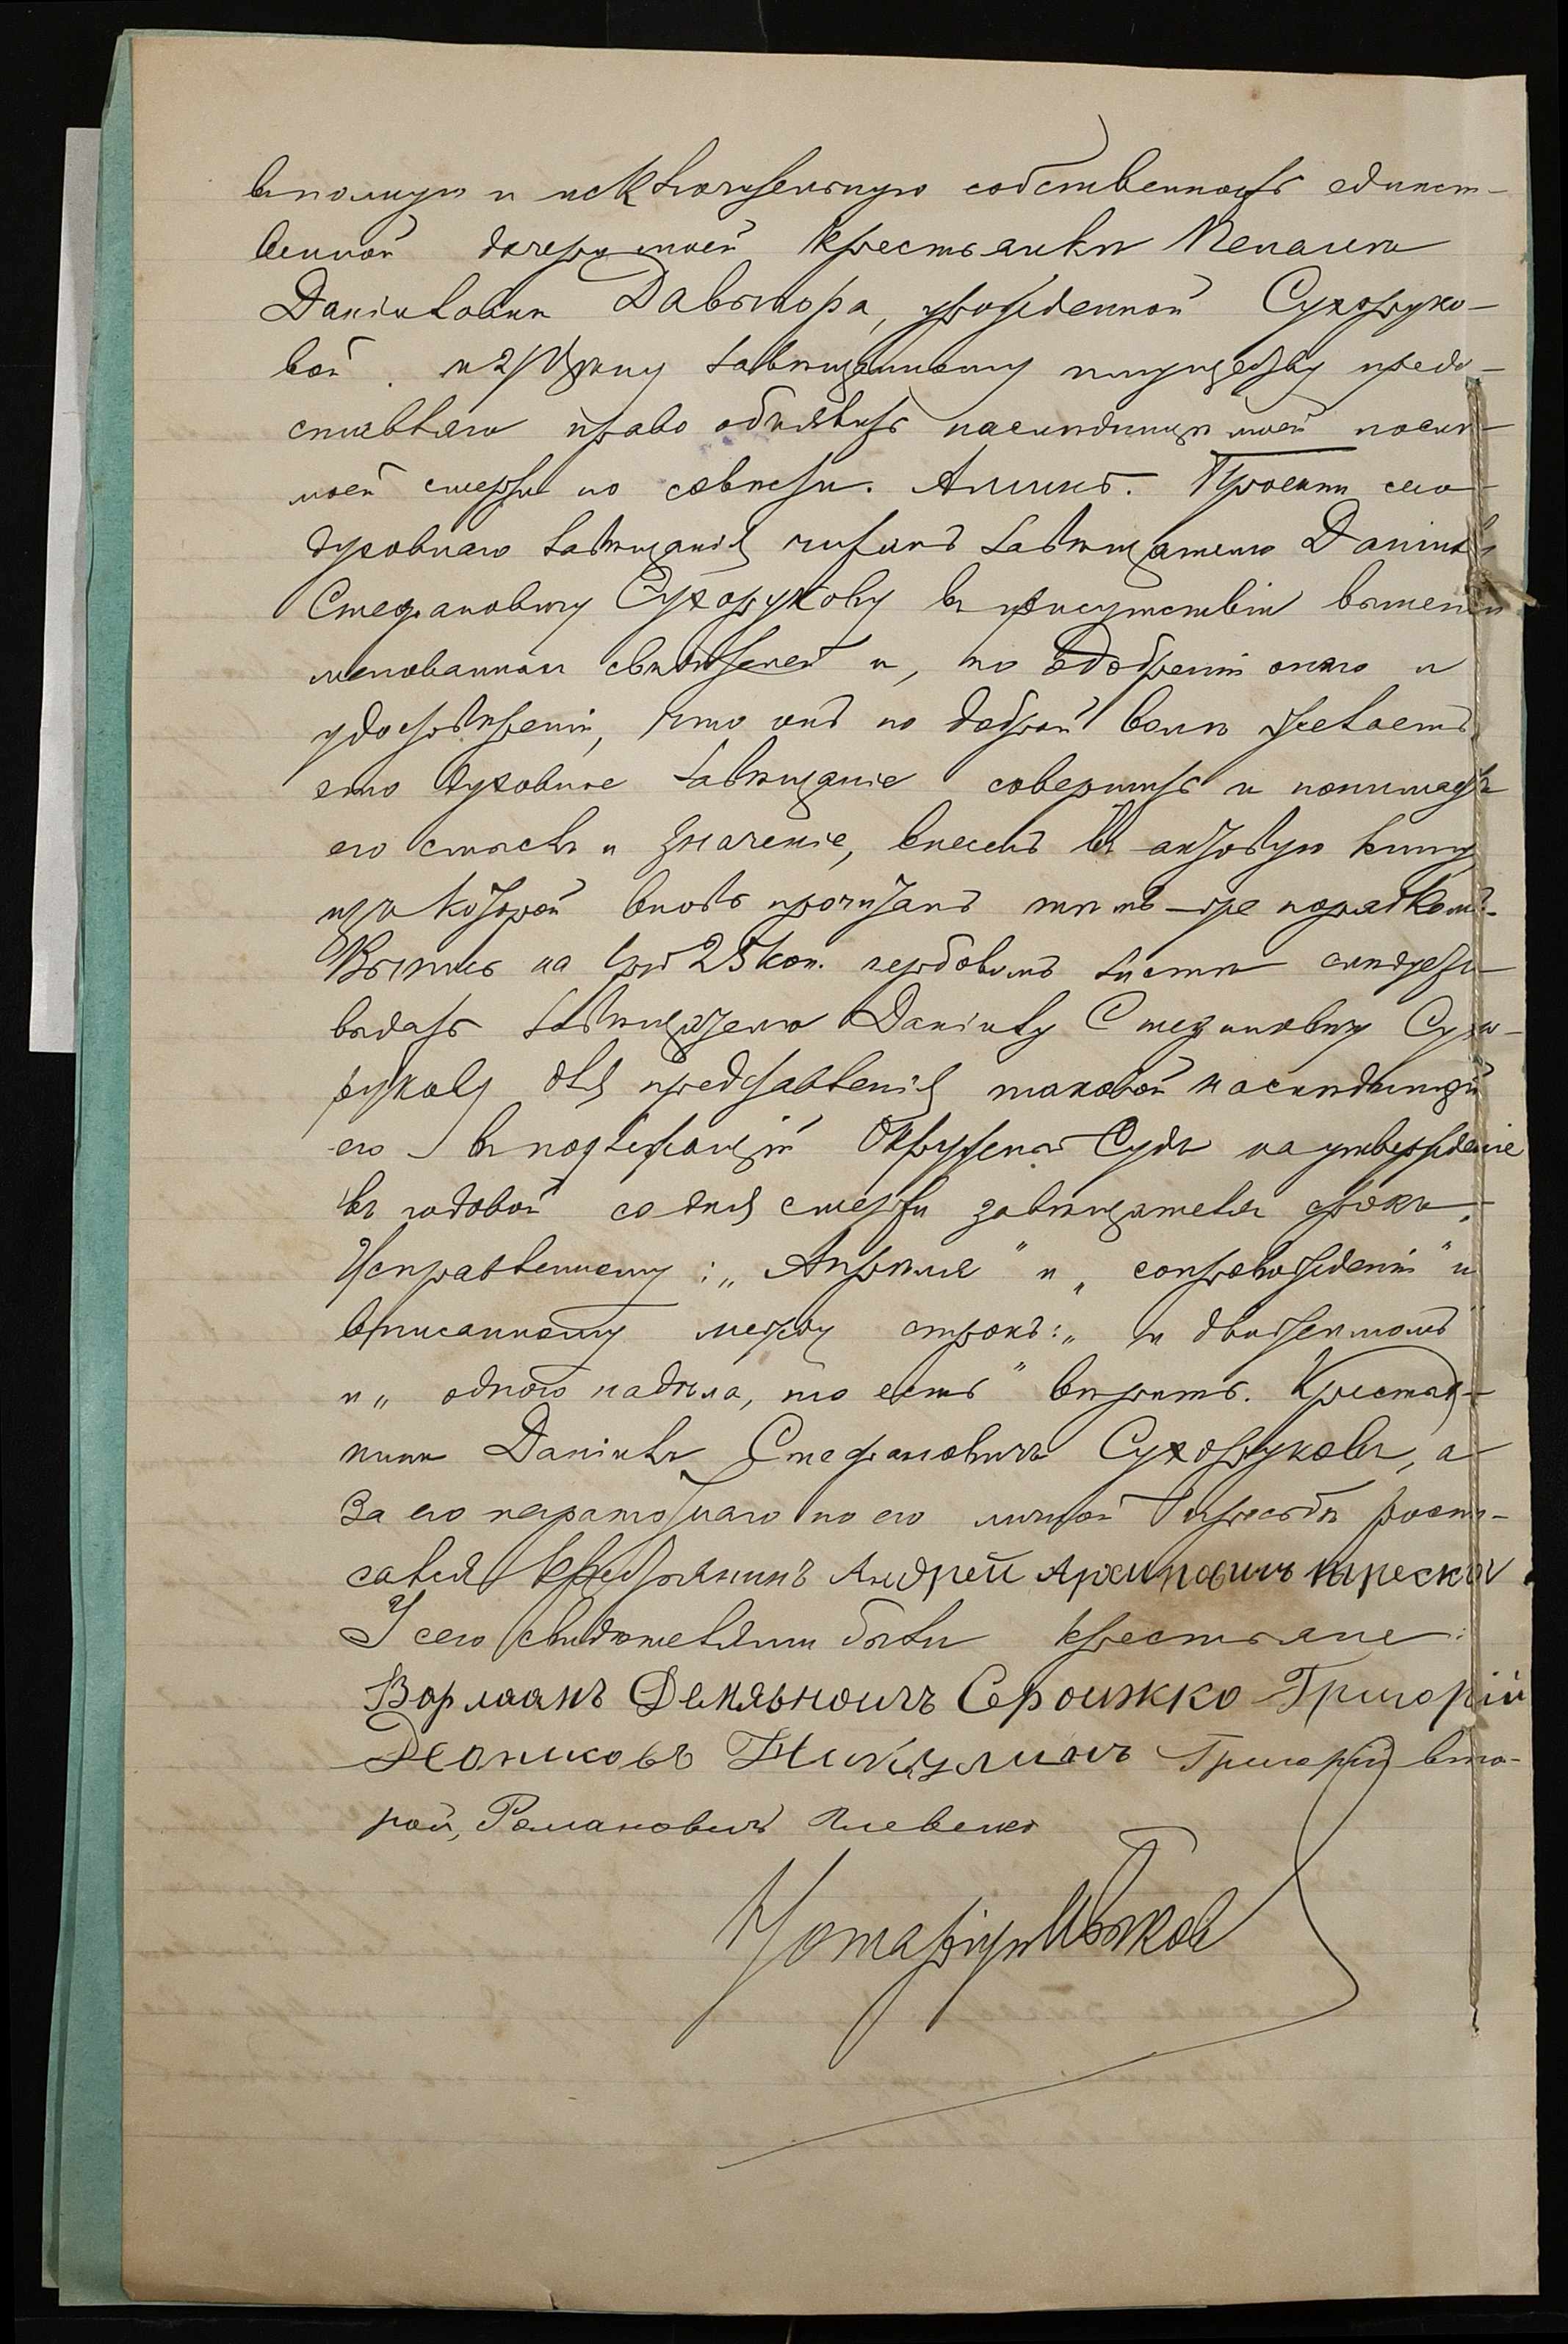 въ полную и исключительную собственность единст-
венной дочери моей крестьянки Меланіи
Даніиловны Давыдора, урожденной Сухоруко-
вой. завѣщанному имуществу предо-
ставляю право объявить наслѣдницѣ моей послѣ
моей смерти по совѣсти. Аминь. Проектъ сего
духовнаго завѣщанія читанъ завѣщателю Даніилу
Стефановичу Сухорукову въ присутствіи вышепои-
менованныхъ свидѣтелей и, по одобреніи онаго и
удостовѣреніи, что онъ по доброй волѣ желаетъ
это духовное завѣщаніе совершить и понимаетъ
его смыслъ и значеніе, внесенъ въ актовую книгу
изъ которой вновь прочитанъ тѣмъ-же порядкомъ.
Выпись на 25 коп. гербовомъ листѣ слѣдуетъ
выдать завѣщателю Даніилу Стефановичу Сухо-
рукову для представленія таковой наслѣдницей
его въ подлежащій Окружный Судъ на утвержденіе
въ годовой со дня смерти завѣщателя срокъ.
Исправленному: „Апрѣля" и „сопровожденіи" и
вписанному между строкъ: „и движимомъ"
и „одного надѣла, то есть" вѣрить. Крестья-
нинъ Даніилъ Стефановичъ Сухоруковъ, а
за его неграмотнаго по его личной просьбѣ распи-
сался крестьянинъ Андрей Архиповичъ
У сего свидѣтелями были крестьяне:
Варлаамъ Демяьновичъ Григорій
Никулинъ Григорій вто-
рой, Романовичъ
Нотаріусъ